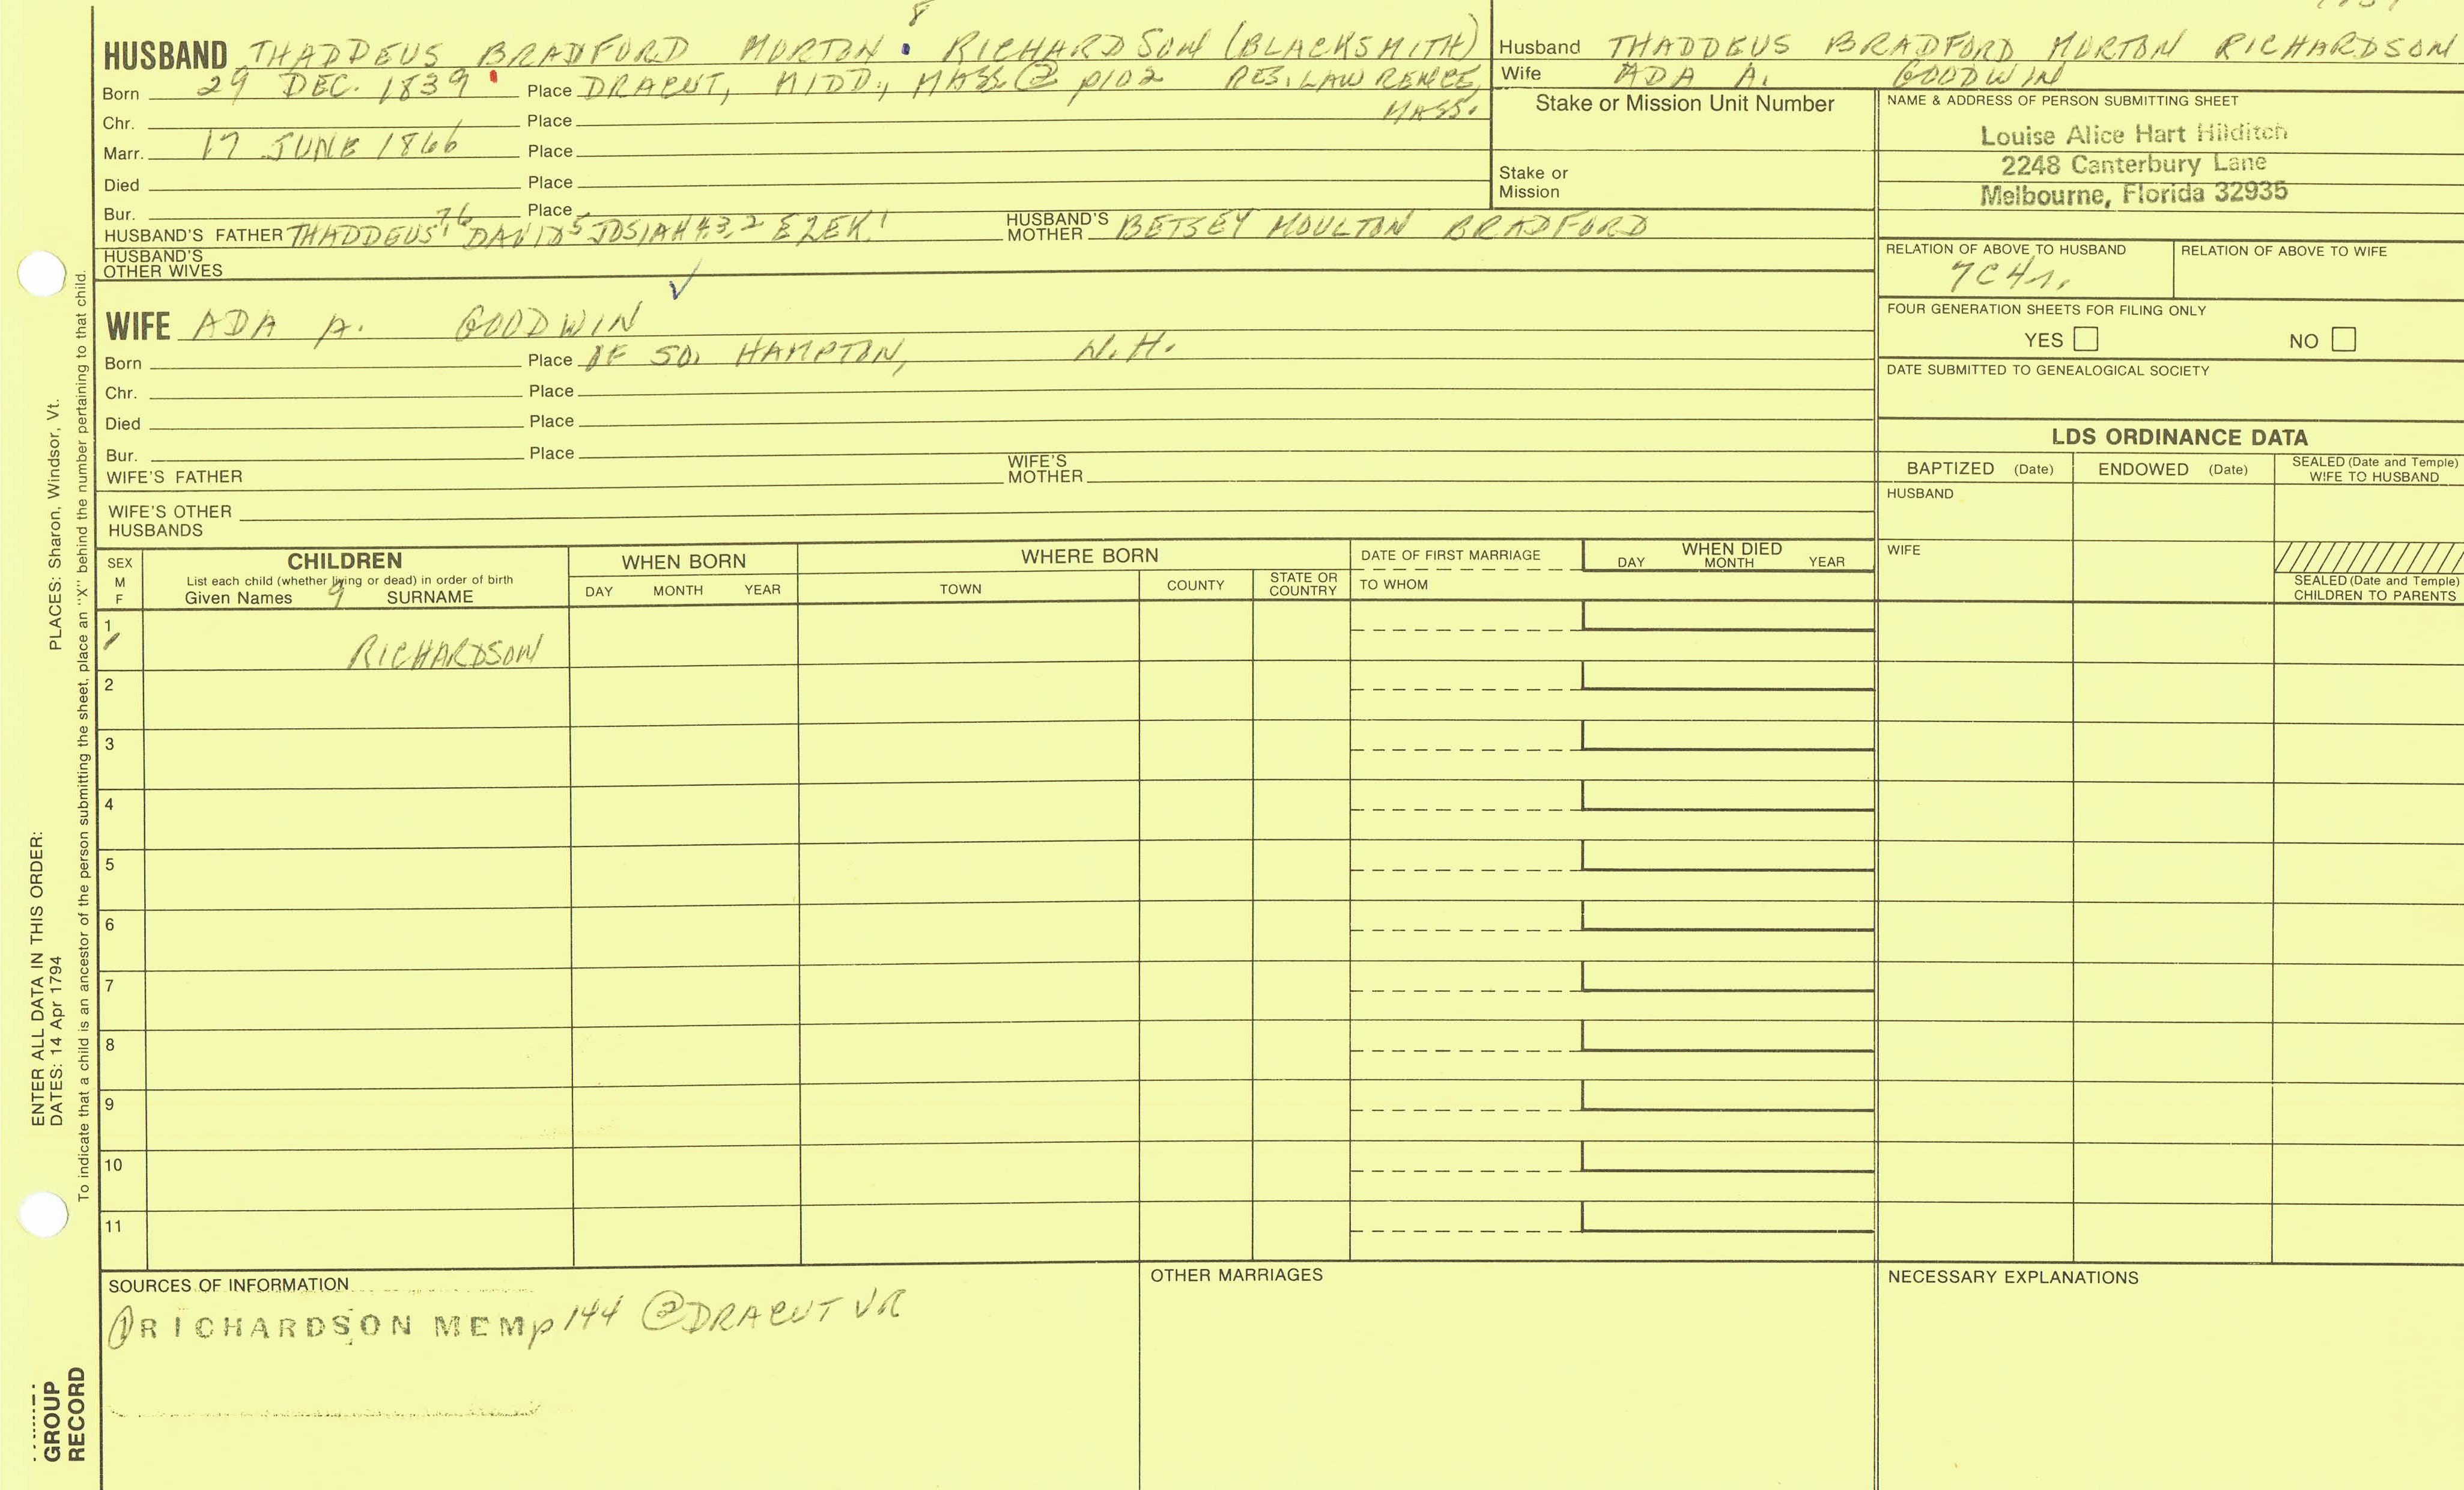 8
HUSBAND THADDEUS BRADFORD MORTON RICHARDSON (BLACKSMITH)
Born 29 DEC. 1839 Place DRACUT, MIDD., MASS. ② p102 RES. LAWRENCE, MASS.
Chr. Place
Marr. 17 JUNE 1866 Place
Died Place
Bur. Place
HUSBAND'S FATHER THADDEUS 7, 6 DAVID 5 JOSIAH 4,3,2 EZEK. 1 HUSBAND'S MOTHER BETSEY MOULTON BRADFORD
HUSBAND'S OTHER WIVES
✓
WIFE ADA A. GOODWIN
Born Place OF SO. HAMPTON, N.H.
Chr. Place
Died Place
Bur. Place
WIFE'S FATHER WIFE'S MOTHER
WIFE'S OTHER HUSBANDS
Husband THADDEUS BRADFORD MORTON RICHARDSON
Wife ADA A. GOODWIN
Stake or Mission Unit Number
Stake or
Mission
NAME & ADDRESS OF PERSON SUBMITTING SHEET
Louise Alice Hart Hilditch
2248 Canterbury Lane
Melbourne, Florida 32935
RELATION OF ABOVE TO HUSBAND RELATION OF ABOVE TO WIFE
7C4r.
FOUR GENERATION SHEETS FOR FILING ONLY
YES NO
DATE SUBMITTED TO GENEALOGICAL SOCIETY
LDS ORDINANCE DATA
BAPTIZED (Date) ENDOWED (Date) SEALED (Date and Temple) WIFE TO HUSBAND
HUSBAND
WIFE
SEALED (Date and Temple)
CHILDREN TO PARENTS
SEX
M
F
CHILDREN
List each child (whether living or dead) in order of birth
Given Names 9 SURNAME
WHEN BORN
DAY MONTH YEAR
WHERE BORN
TOWN COUNTY STATE OR COUNTRY
DATE OF FIRST MARRIAGE
TO WHOM
WHEN DIED
DAY MONTH YEAR
1 RICHARDSON
2
3
4
5
6
7
8
9
10
11
SOURCES OF INFORMATION
① RICHARDSON MEM p 144 ② DRACUT VR
OTHER MARRIAGES
NECESSARY EXPLANATIONS
ENTER ALL DATA IN THIS ORDER:
DATES: 14 Apr 1794 PLACES: Sharon, Windsor, Vt.
To indicate that a child is an ancestor of the person submitting the sheet, place an "X" behind the number pertaining to that child.
GROUP
RECORD